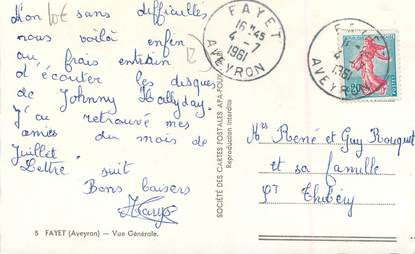 Non sans difficultés
nous voilà enfin
au frais entrain
d'écouter les disques
de Johnny Hallyday.
J'ai retrouvé mes
amies du mois de
Juillet
Lettre suit
Bons baisers
5 FAYET (Aveyron) — Vue Générale.
SOCIÉTÉ DES CARTES POSTALES APA-POUX
Reproduction interdite
FAYET
16H45
4-7
1961
AVEYRON
FAYET
4-7
1961
AVEYRON
Mrs René et Guy Bouquet
et sa famille
St Thibéry